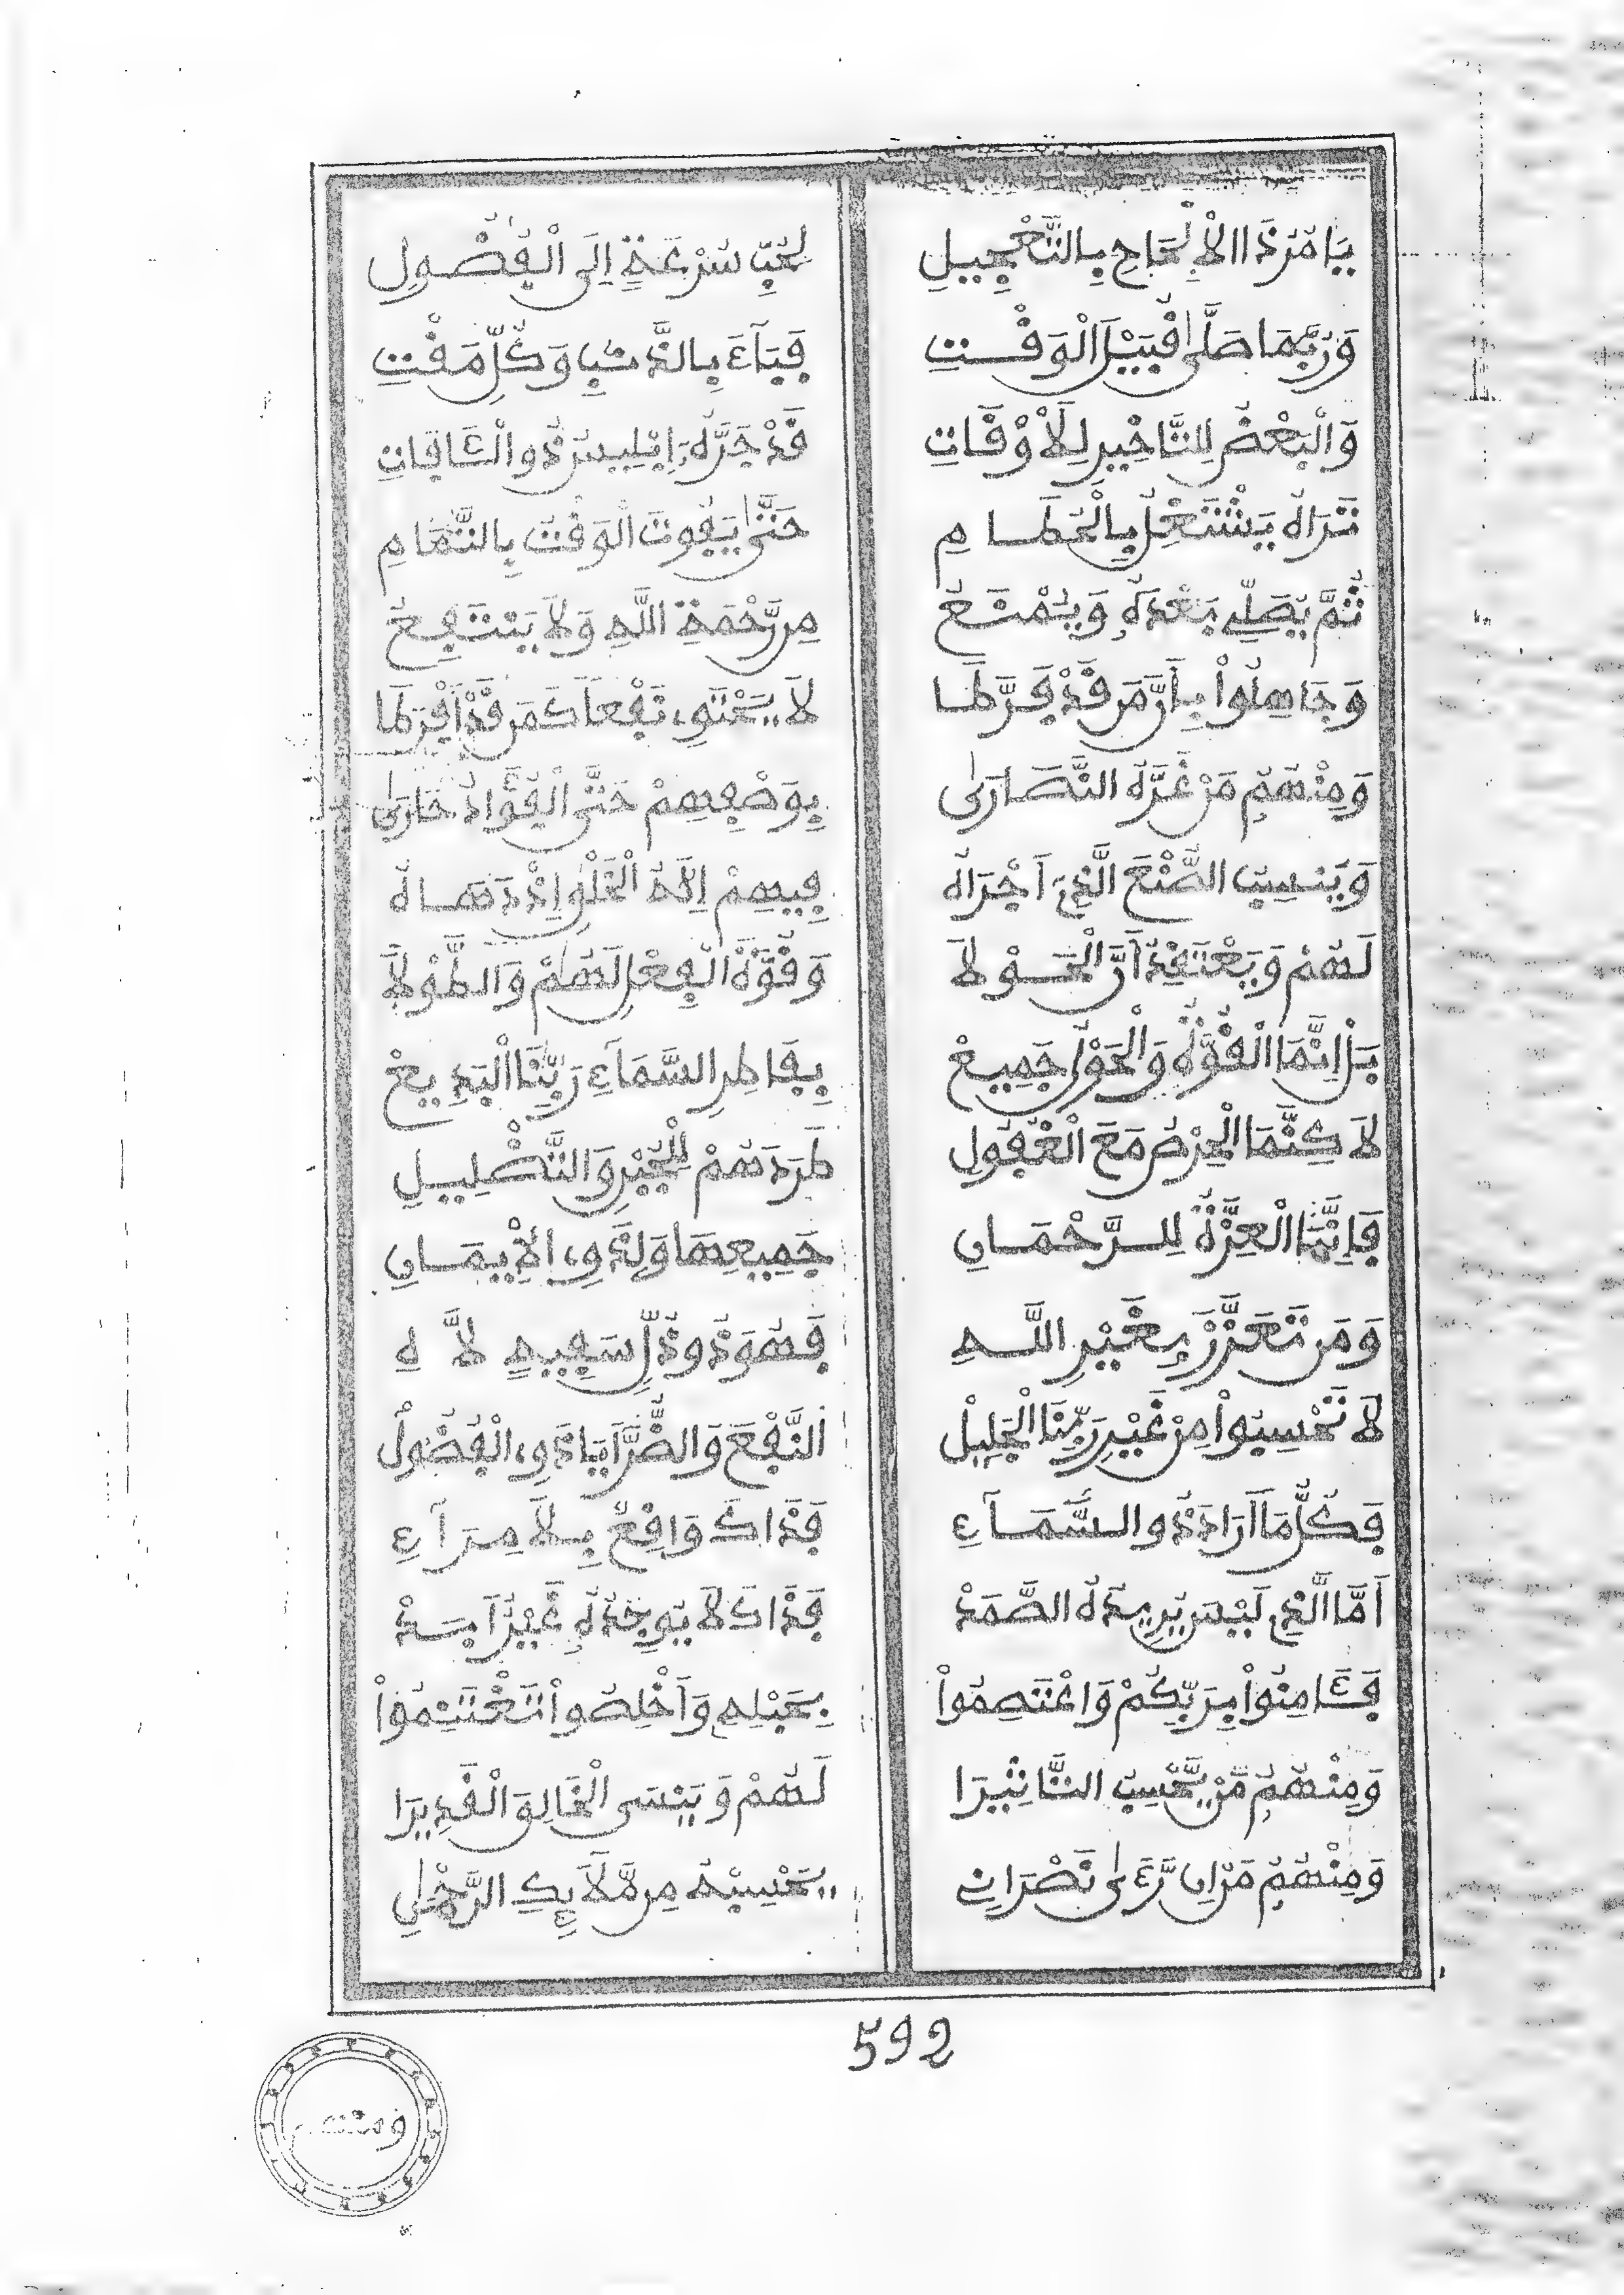 يَامُرُ ذَا الِالْحَاحِ بِالتَّعْجِيلِ لِحُبِّ سُرْعَةٍ إِلَى الْفُضُولِ
وَرُبَّمَا صَلَّى قُبَيْلَ الْوَقْتِ فَبَآءَ بِالذَّنْبِ وَكُلِّ مَقْتِ
وَالْبَعْضُ لِلتَّاخِيرِ لِلَاوْقَاتِ قَدْ جَرَّهُ إِبْلِيسُ ذُو الْآفَاتِ
تَرَاهُ يَشْتَغِلُ بِالْحُطَامِ حَتَّى يَفُوتَ الْوَقْتُ بِالتَّمَامِ
ثُمَّ يُصَلِّي بَعْدَهُ وَيُمْنَعُ مِن رَّحْمَةِ اللَّهِ وَلَا يَنْتَفِعُ
وَجَاهِلُواْ بِأَنَّ مَن قَدْ فَرَّطَا لَا يَحْتَوِي نَفْعاً كَمَن قَدْ أَفْرَطَا
وَمِنْهُمُ مَنْ غَرَّهُ النَّصَارَى بِوَضْعِهِمْ حَتَّى الْفُؤَادُ حَارَى
وَيَنْسِبُ الصُّنْعَ الَّذِي أَجْرَاهُ فِيهِمْ إِلَهُ الْخَلْقِ إِذْ دَهَاهُ
لَهُمْ وَيَعْتَقِدُ أَنَّ الْحَوْلَا وَقُوَّةَ الْفِعْلِ لَهُمْ وَالطَّوْلَا
بَلْ إِنَّمَا الْقُوَّةُ وَالْحَوْلُ جَمِيعْ بِفَاطِرِ السَّمَآءِ رَبِّنَا الْبَدِيعْ
لَاكِنَّمَا الْحِرْصُ مَعَ الْغُفُولِ طَرَدَهُمْ لِلْجَبْرِ وَالتَّضْلِيلِ
فَإِنَّمَا الْعِزَّةُ لِلرَّحْمَانِ جَمِيعِهَا وَلِذَوِي الْإِيمَانِ
وَمَن تَعَزَّزَ بِغَيْرِ اللَّهِ فَهُوَ ذُو ذُلٍّ سَفِيهٍ لَّاهِ
لَا تَحْسِبُواْ مِنْ غَيْرِ رَبِّنَا الْجَلِيلْ النَّفْعَ وَالضُّرَّ أَيَا ذَوِي الْفُضُولْ
فَكُلُّ مَا أَرَادَ ذُو السَّمَآءِ فَذَاكَ وَاقِعٌ بِلَا مِرَآءِ
أَمَّا الَّذِي لَيْسَ يُرِيدُهُ الصَّمَدْ فَذَاكَ لَا يُوجِدُهُ غَيْرُ أَحَدْ
فَآمِنُواْ بِرَبِّكُمْ وَاعْتَصِمُواْ بِحَبْلِهِ وَأَخْلِصُواْ لِتَغْتَنِمُواْ
وَمِنْهُمُ مَّنْ يَّحْسِبُ التَّاثِيرَا لَهُمْ وَيَنْسَى الْخَالِقَ الْقَدِيرَا
وَمِنْهُمُ مَنْ إِن رَّءَى نَصْرَانِي يَحْسِبُهُ مِن مَّلَائِكِ الرَّحْمٰنِ
592
ومنهم